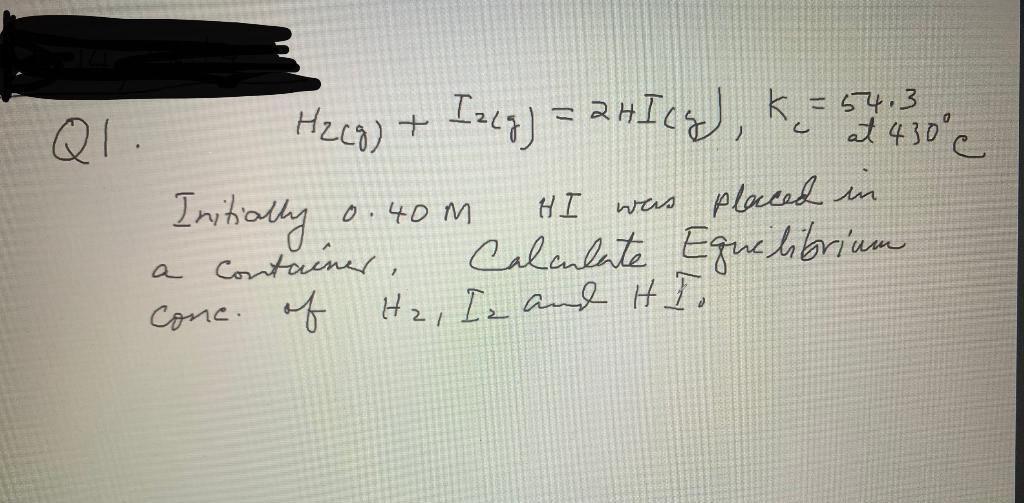 Q1. H2(g) + I2(g) = 2HI(g), Kc = 54.3
at 430°C
Initially 0.40 M HI was placed in
a container. Calculate Equilibrium
conc. of H2, I2 and HI.